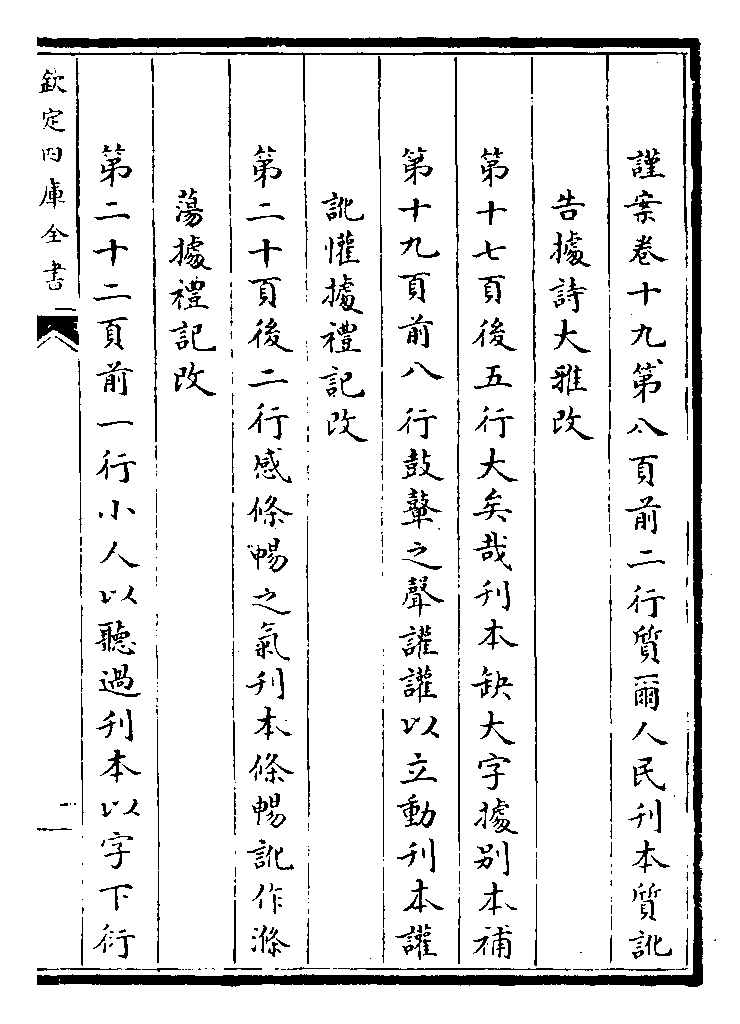 謹案卷十九第八頁前二行質爾人民刊本質訛
告據詩大雅改
第十七頁後五行大矣哉刊本缺大字據别本補
第十九頁前八行鼓鼙之聲讙讙以立動刊本讙
訛懽據禮記改
第二十頁後二行感條暢之氣刊本條暢訛作滌
蕩據禮記改
第二十二頁前一行小人以聽過刊本以字下衍
欽定四庫全書
二